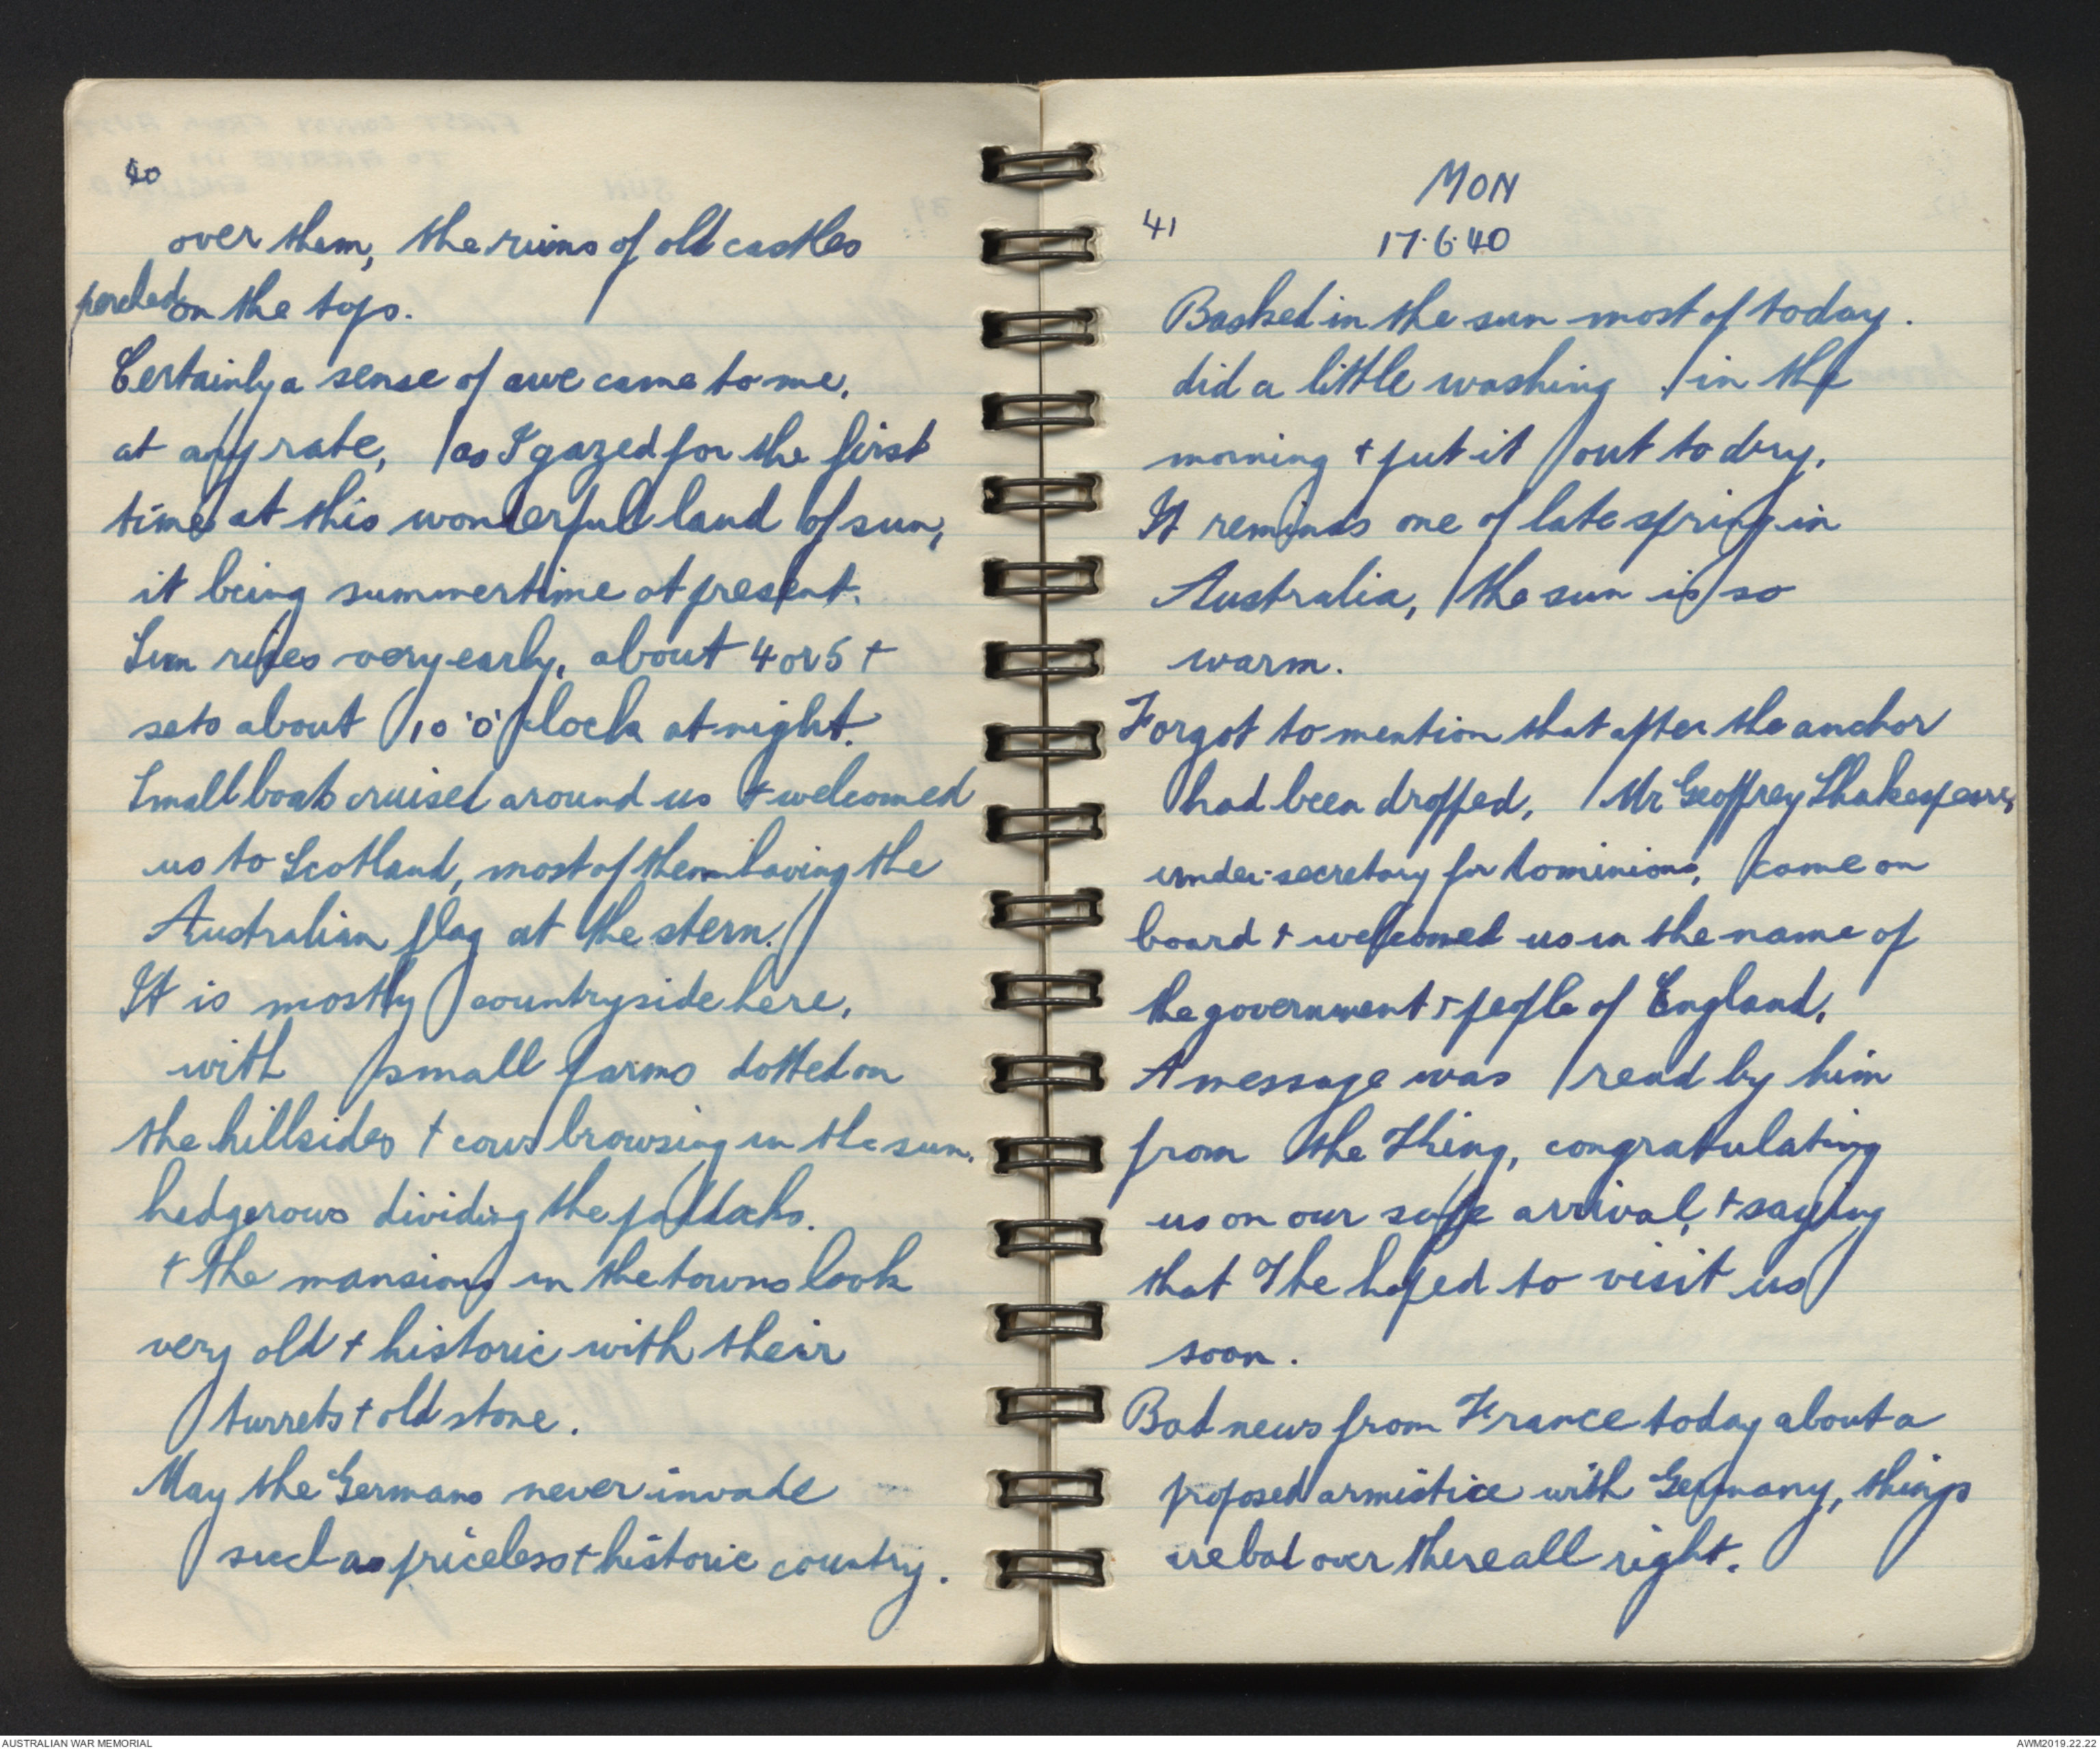 40
over them, the ruins of old castles
perched on the tops.
Certainly a sense of awe came to me,
at any rate, as I gazed for the first
time at this wonderful land of sun,
it being summertime at present.
Sun rises very early, about 4 or 5 +
sets about 10 'o' clock at night.
Small boats cruised around us + welcomed
us to Scotland, most of them having the
Australian flag at the stern.
It is mostly countryside here,
with small farms dotted on
the hillsides + cows browsing in the sun,
hedgerows dividing the paddocks.
+ the mansions in the towns look
very old + historic with their
turrets + old stone.
May the Germans never invade
such a priceless + historic country.
MON
41
17.6.40
Basked in the sun most of today.
did a little washing in the
morning + put it out to dry.
It reminds one of late spring in
Australia, the sun is so
warm.
Forgot to mention that after the anchor
had been dropped, Mr Geoffrey Shakespeare,
under-secretary for Dominions, came on
board + welcomed us in the name of
the government + people of England.
A message was read by him
from the King, congratulating
us on our safe arrival, + saying
that he hoped to visit us
soon.
Bad news from France today about a
proposed armistice with Germany, things
are bad over there all right.
AUSTRALIAN WAR MEMORIAL
AWM2019.22.22